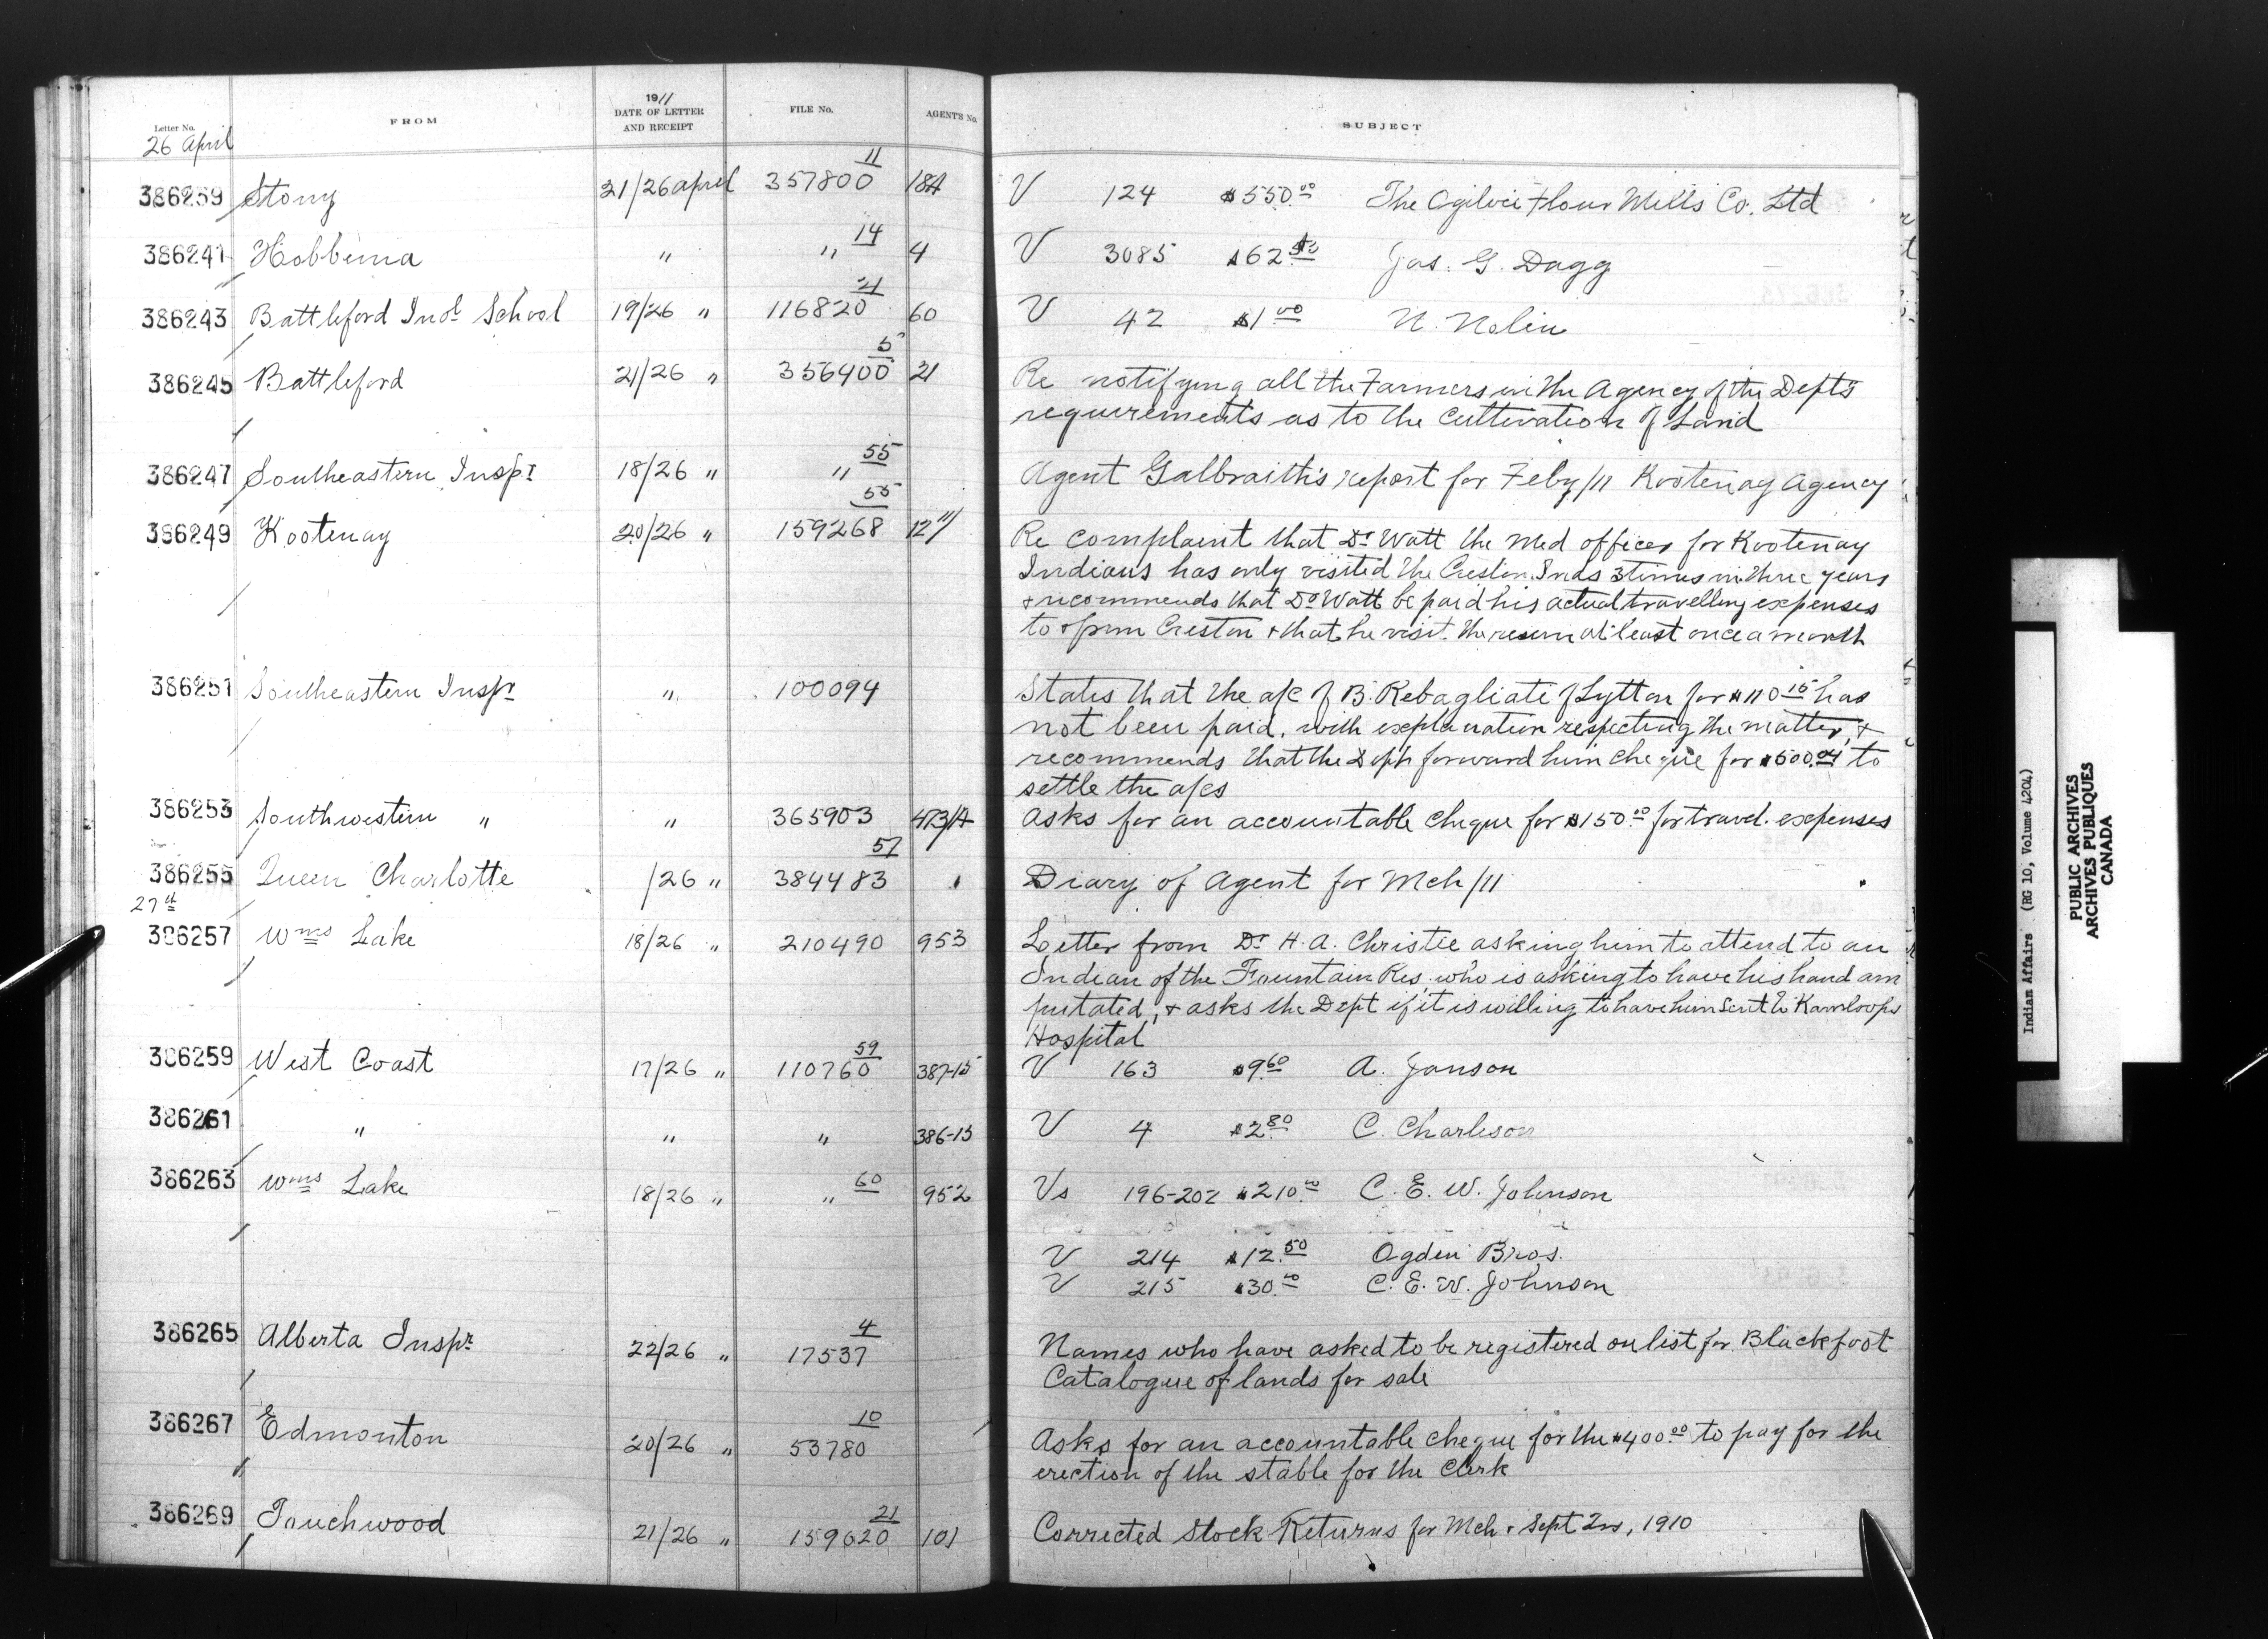 Letter No. FROM 1911 DATE OF LETTER AND RECEIPT FILE No. AGENT'S No. SUBJECT
26 April
386239 Stony 21/26 april 357800 11 18A V 124 $550.00 The Ogilvie Flour Mills Co. Ltd
386241 Hobbema " " 14 4 V 3085 $62 Jas. G. Dagg
386243 Battleford Indl School 19/26 " 116820 21 60 V 42 $1.00 N. Nolin
386245 Battleford 21/26 " 356400 5 21 Re notifying all the Farmers in the Agency of the Dept's
requirements as to the cultivation of Land
386247 Southeastern Inspr 18/26 " " 55 Agent Galbraith's report for Feby/11 Kootenay Agency
386249 Kootenay 20/26 " 159268 55 12"/ Re complaint that Dr Watt the Med officer for Kootenay
Indians has only visited the Creston Inds 3 times in three years
& recommends that Dr Watt be paid his actual travelling expenses
to & from Creston & that he visit the reserve at least once a month
386251 Southeastern Inspr " 100094 States that the a/c of B. Rebagliati of Lytton for $110.15 has
not been paid, with explanation respecting the matter, &
recommends that the Dept forward him cheque for $500.04 to
settle the a/cs
386253 Southwestern " " 365903 473/A Asks for an accountable cheque for $150.00 for travel. expenses
386255 Queen Charlotte /26 " 384483 57 Diary of Agent for Mch/11
27th
386257 Wms Lake 18/26 " 210490 953 Letter from Dr H. A. Christie asking him to attend to an
Indian of the Fountain Res. who is asking to have his hand am
putated, & asks the Dept if it is willing to have him sent to Kamloops
Hospital
386259 West Coast 17/26 " 110760 59 387-15 V 163 $9.60 A. Janson
386261 " " " 386-15 V 4 $2.80 C. Charleson
386263 Wms Lake 18/26 " " 60 952 Vs 196-202 $210.00 C. E. W. Johnson
V 214 $12.50 Ogden Bros.
V 215 $30.00 C. E. W. Johnson
386265 Alberta Inspr 22/26 " 17537 4 Names who have asked to be registered on list for Blackfoot
Catalogue of lands for sale
386267 Edmonton 20/26 " 53780 10 Asks for an accountable cheque for the $400.00 to pay for the
erection of the stable for the Clerk
386269 Touchwood 21/26 " 159620 21 101 Corrected Stock Returns for Mch & Sept Qrs, 1910
Indian Affairs (RG 10, Volume 4204)
PUBLIC ARCHIVES
ARCHIVES PUBLIQUES
CANADA